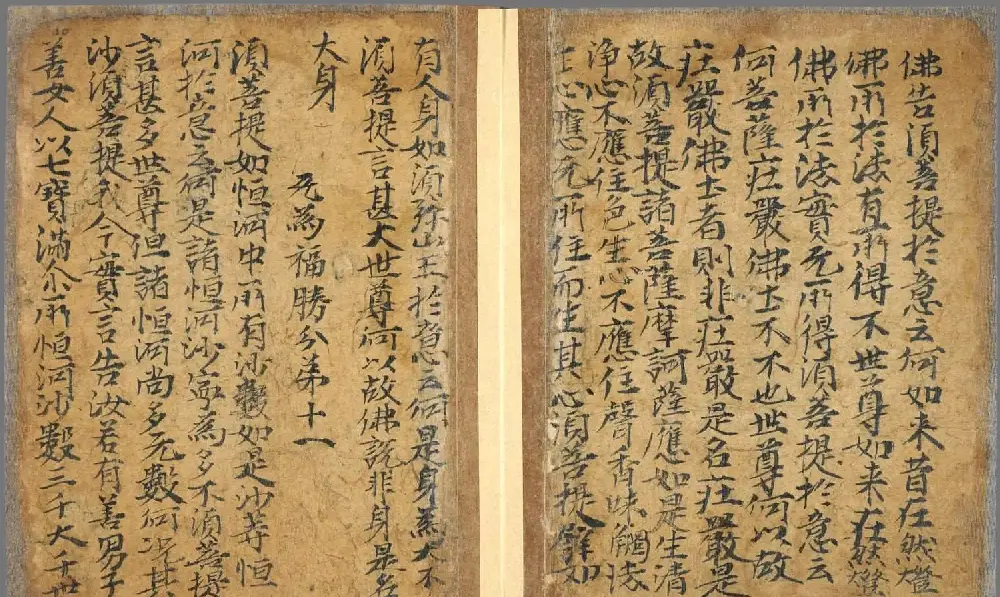 佛告須菩提於意云何如来昔在然燈
佛所於法有所得不世尊如来在然燈
佛所於法實无所得須菩提於意云
何菩薩庄嚴佛土不不也世尊何以故
庄嚴佛土者則非庄嚴是名庄嚴是
故須菩提諸菩薩摩訶薩應如是生清
淨心不應住色生心不應住聲香味觸法
生心應无所住而生其心須菩提譬如
有人身如須弥山王於意云何是身為大不
須菩提言甚大世尊何以故佛説非身是名
大身
无為福勝分第十一
須菩提如恒河中所有沙數如是沙等恒
河於意云何是諸恒河沙寧為多不須菩提
言甚多世尊但諸恒河尚多无數何况其
沙須菩提我今實言告汝若有善男子
善女人以七寶滿尒所恒河沙數三千大千世